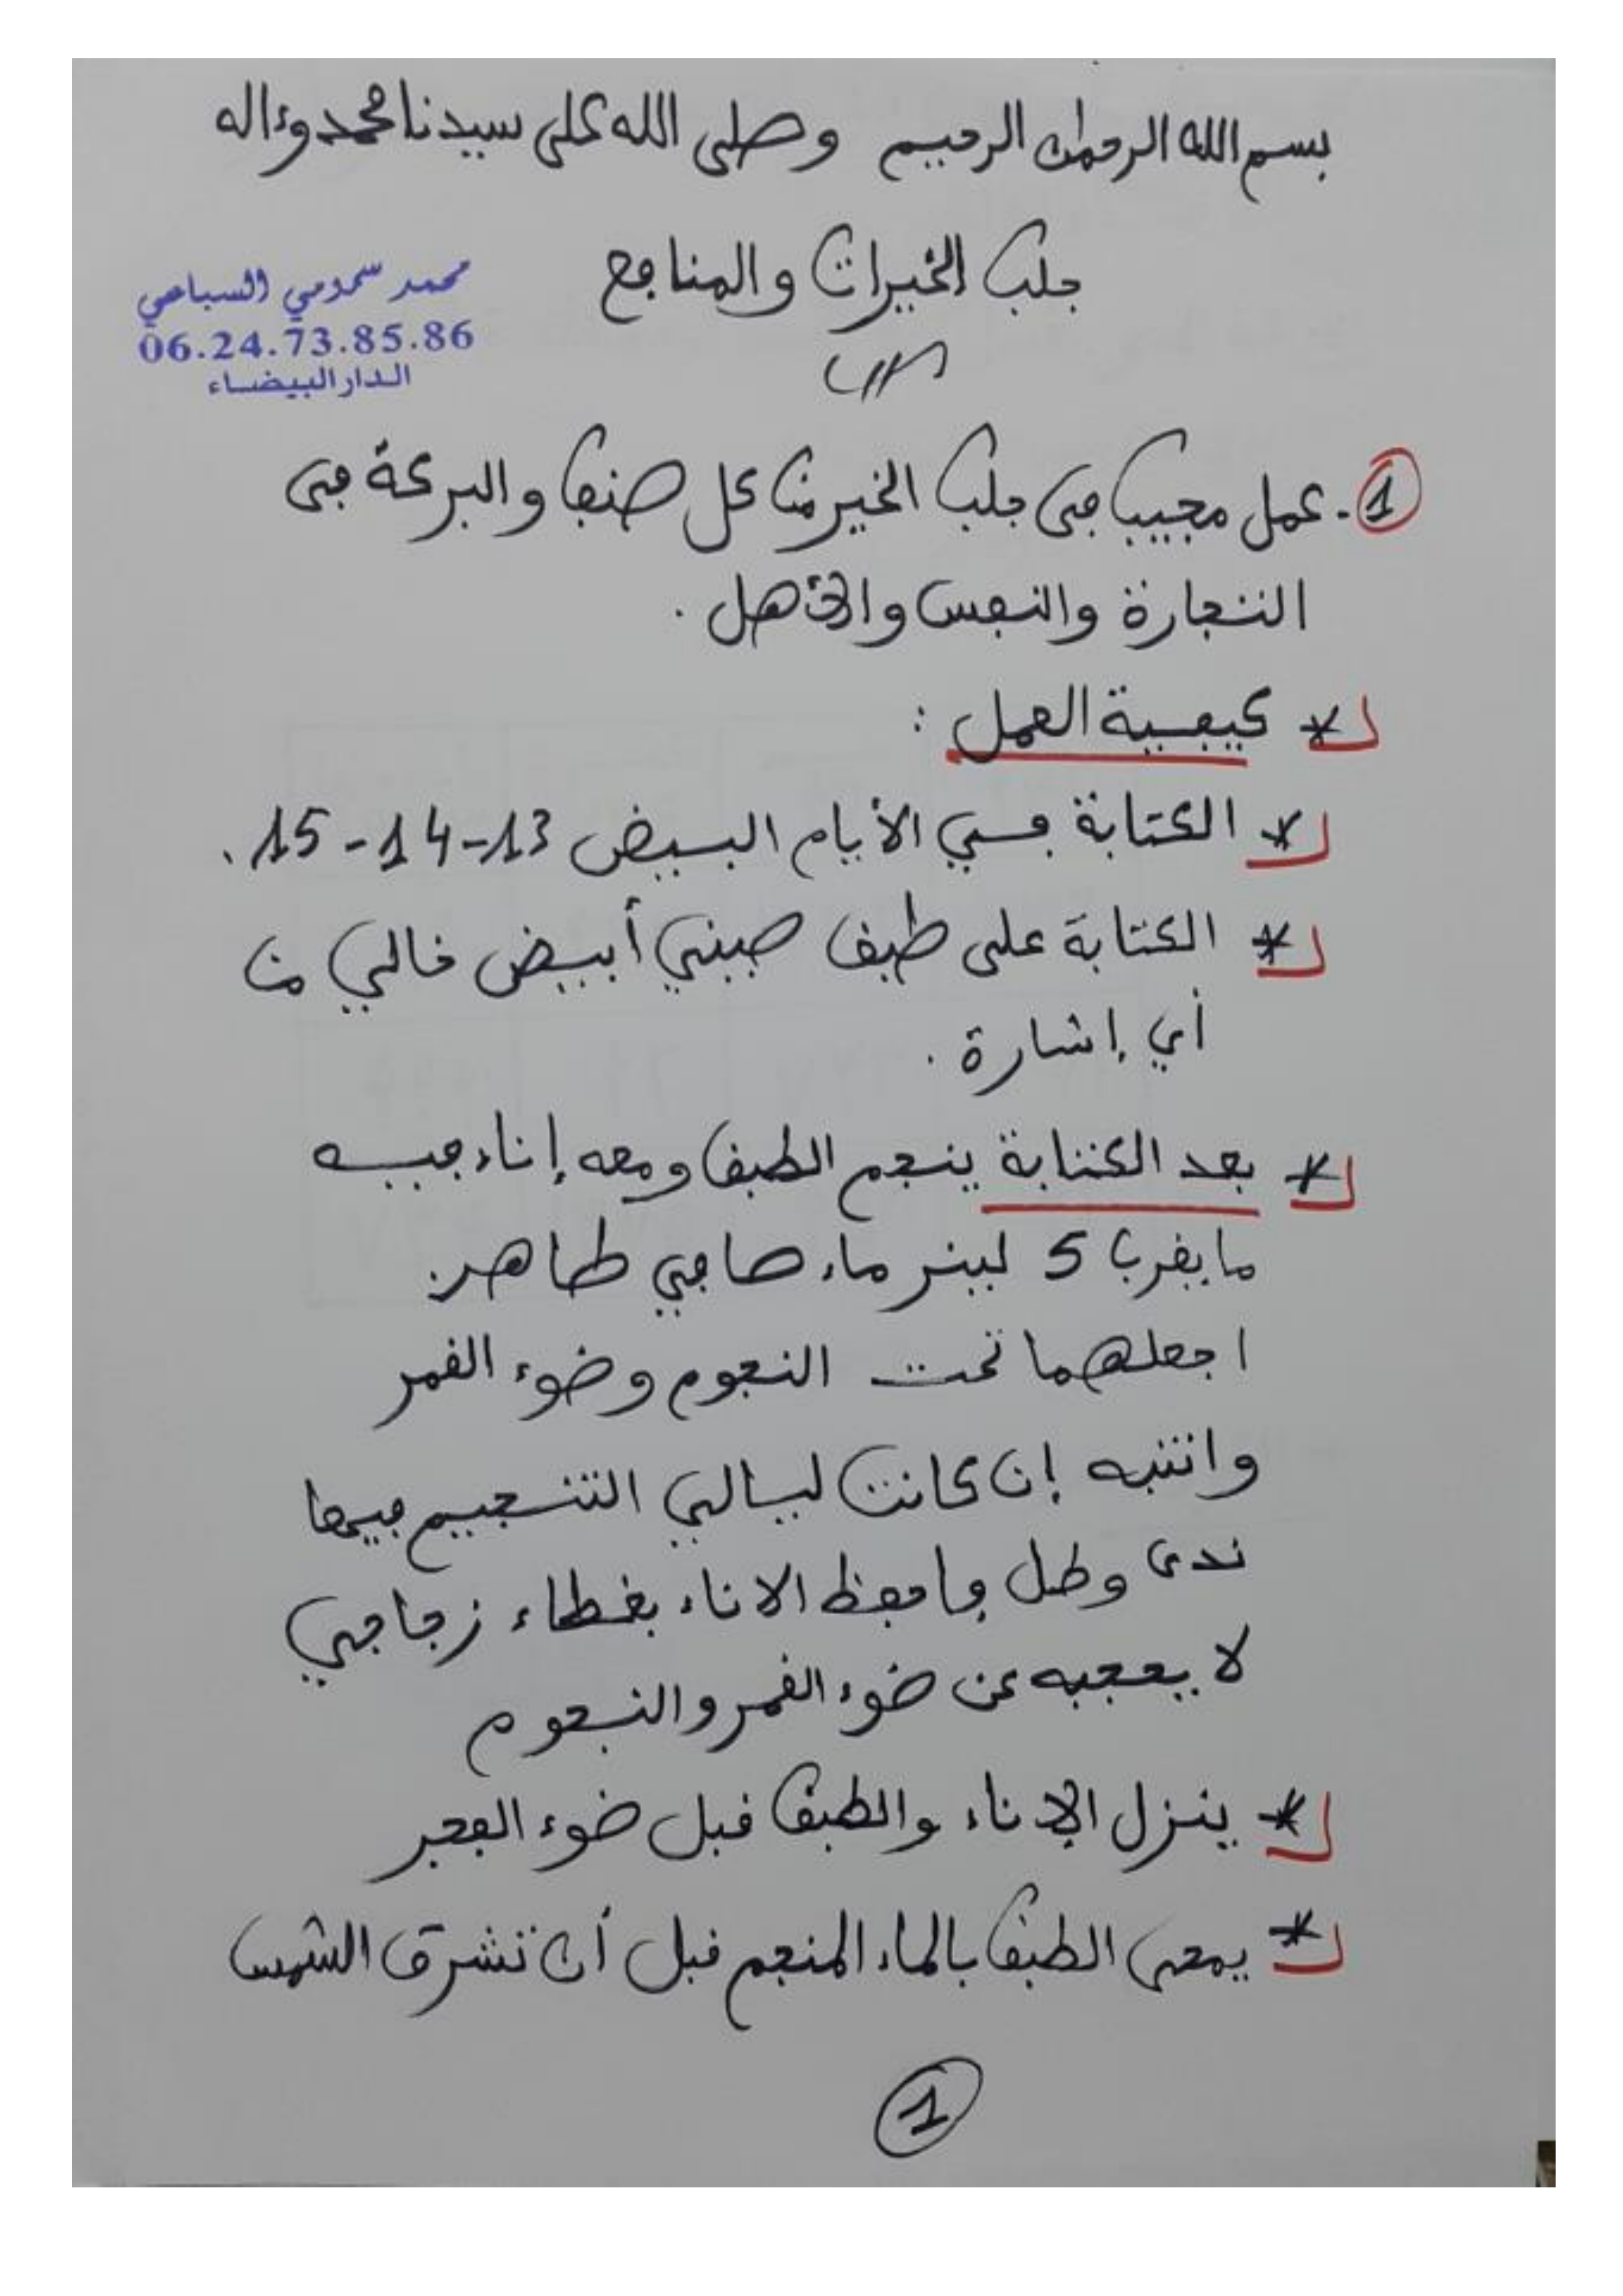 بسم الله الرحمان الرحيم وصلى الله على سيدنا محمد وءاله
جلب الخيرات والمنافع
محمد سمومي السباعي
06.24.73.85.86
الدار البيضاء
1 - عمل مجيب في جلب الخير من كل صنف والبركة في
التجارة والنفس والأهل .
* كيفية العمل :
* الكتابة في الأيام البيض 13-14-15 .
* الكتابة على طبق صيني أبيض خالي من
أي إشارة .
* بعد الكتابة ينجم الطبق ومعه إناء فيه
ما يقرب 5 ليتر ماء صافي طاهر .
اجعلهما تحت النجوم وضوء القمر
وانتبه إن كانت ليالي التنجيم فيها
ندى وطل فاحفظ الاناء بغطاء زجاجي
لا يحجبه عن ضوء القمر والنجوم
* ينزل الإناء والطبق قبل ضوء الفجر
* يمحى الطبق بالماء المنجم قبل أن تشرق الشمس
1